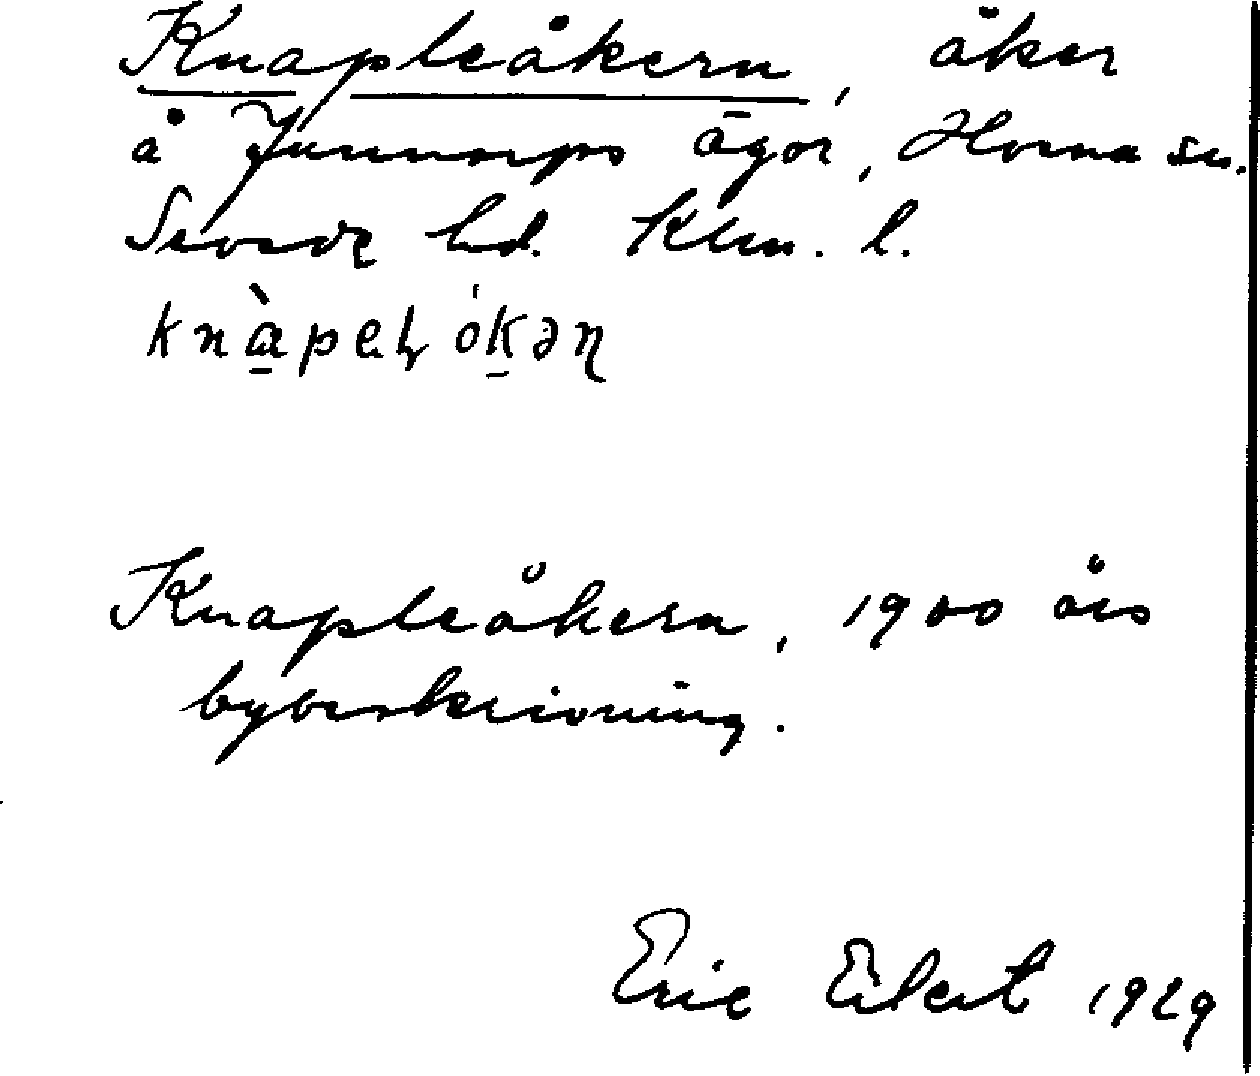 Knapleåkern, åker
å Gunnarps ägor, Horna sn.
Sevede hd. Klm. l.
Knapleåkern, 1900 års
bybeskrivning.
Eric Eilert 1929